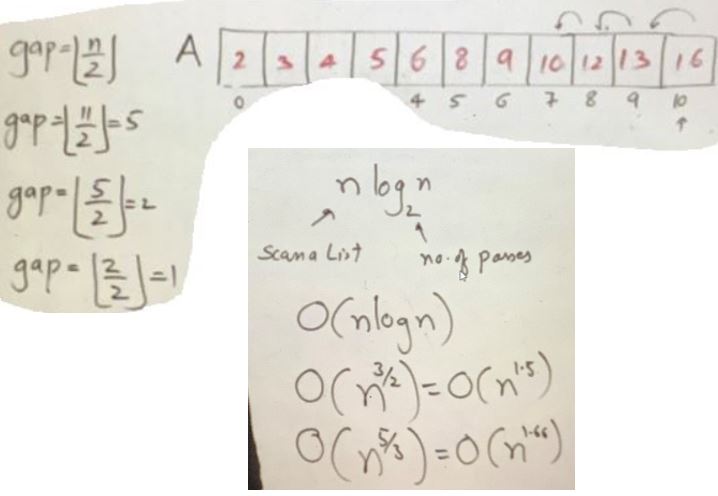 gap=⌊n/2⌋
gap=⌊11/2⌋=5
gap=⌊5/2⌋=2
gap=⌊2/2⌋=1
A 2 3 4 5 6 8 9 10 12 13 16
0 4 5 6 7 8 9 10
n log₂n
Scan a List no. of passes
O(nlogn)
O(n^3/2)=O(n^1.5)
O(n^5/3)=O(n^1.66)